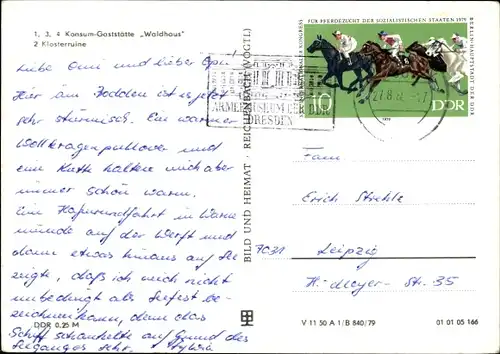 1, 3, 4 Konsum-Gaststätte „Waldhaus"
2 Klosterruine
Liebe Omi und lieber Opi!
Hier am Bodden ist es jetzt
sehr stürmisch. Ein warmer
Wollkragenpullover und
eine Kutte halten mich aber
immer schön warm.
Eine Hafenrundfahrt in Warne
münde auf der Werft und
dann etwas hinaus auf See
zeigte, daß ich mich nicht
unbedingt als Seefest be-
zeichnen kann, denn das
Schiff schaukelte auf Grund des
Seeganges sehr. Sylvia
DDR 0,25 M
BILD UND HEIMAT · REICHENBACH (VOGTL)
ARMEEMUSEUM DER DDR
DRESDEN
INTERNATIONALER KONGRESS
FÜR PFERDEZUCHT DER SOZIALISTISCHEN STAATEN 1979
BERLIN-HAUPTSTADT DER DDR
10
DDR
1979
Fam
Erich Strehle
7031 Leipzig
H.-Meyer-Str. 35
V 11 50 A 1/B 640/79
01 01 05 166